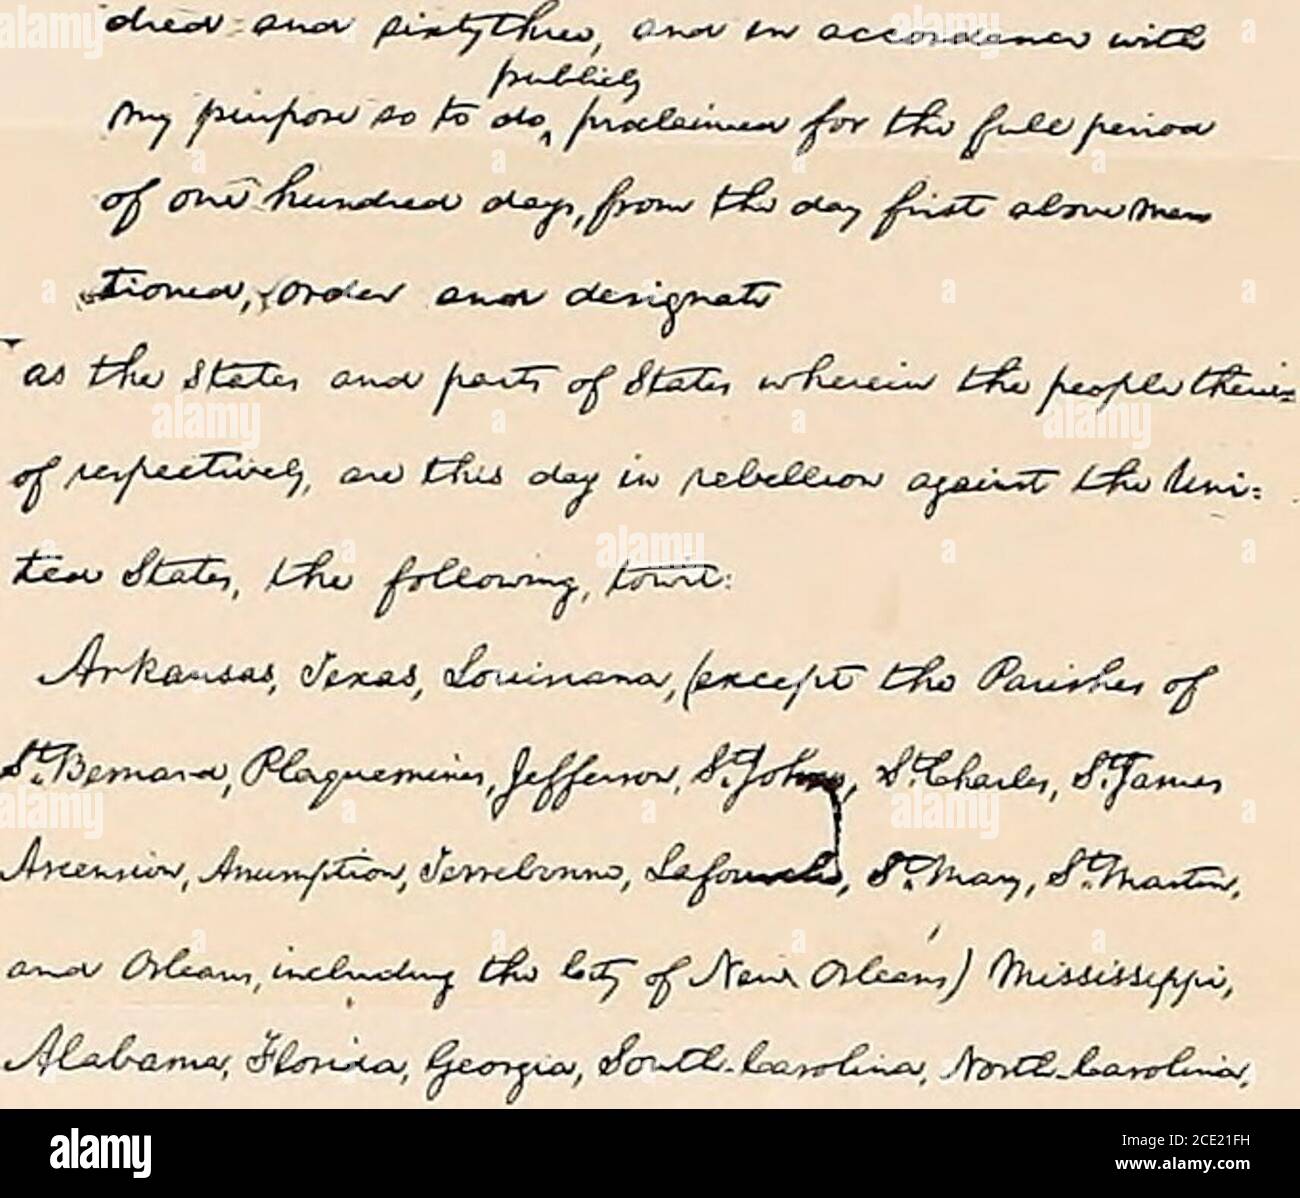 dred and sixty three, and in accordance with
publicly
my purpose so to do, proclaimed for the full period
of one hundred days, from the day first above men
tioned, order and designate
as the States and parts of States wherein the people there=
of respectively, are this day in rebellion against the Uni=
ted States, the following, towit:
Arkansas, Texas, Louisiana, (except the Parishes of
St. Bernard, Plaquemines, Jefferson, St. Johns, St. Charles, St. James
Ascension, Assumption, Terrebonne, Lafourche, St. Mary, St. Martin,
and Orleans, including the City of New Orleans) Mississippi,
Alabama, Florida, Georgia, South-Carolina, North-Carolina,
alamy
Image ID: 2CE21FH
www.alamy.com